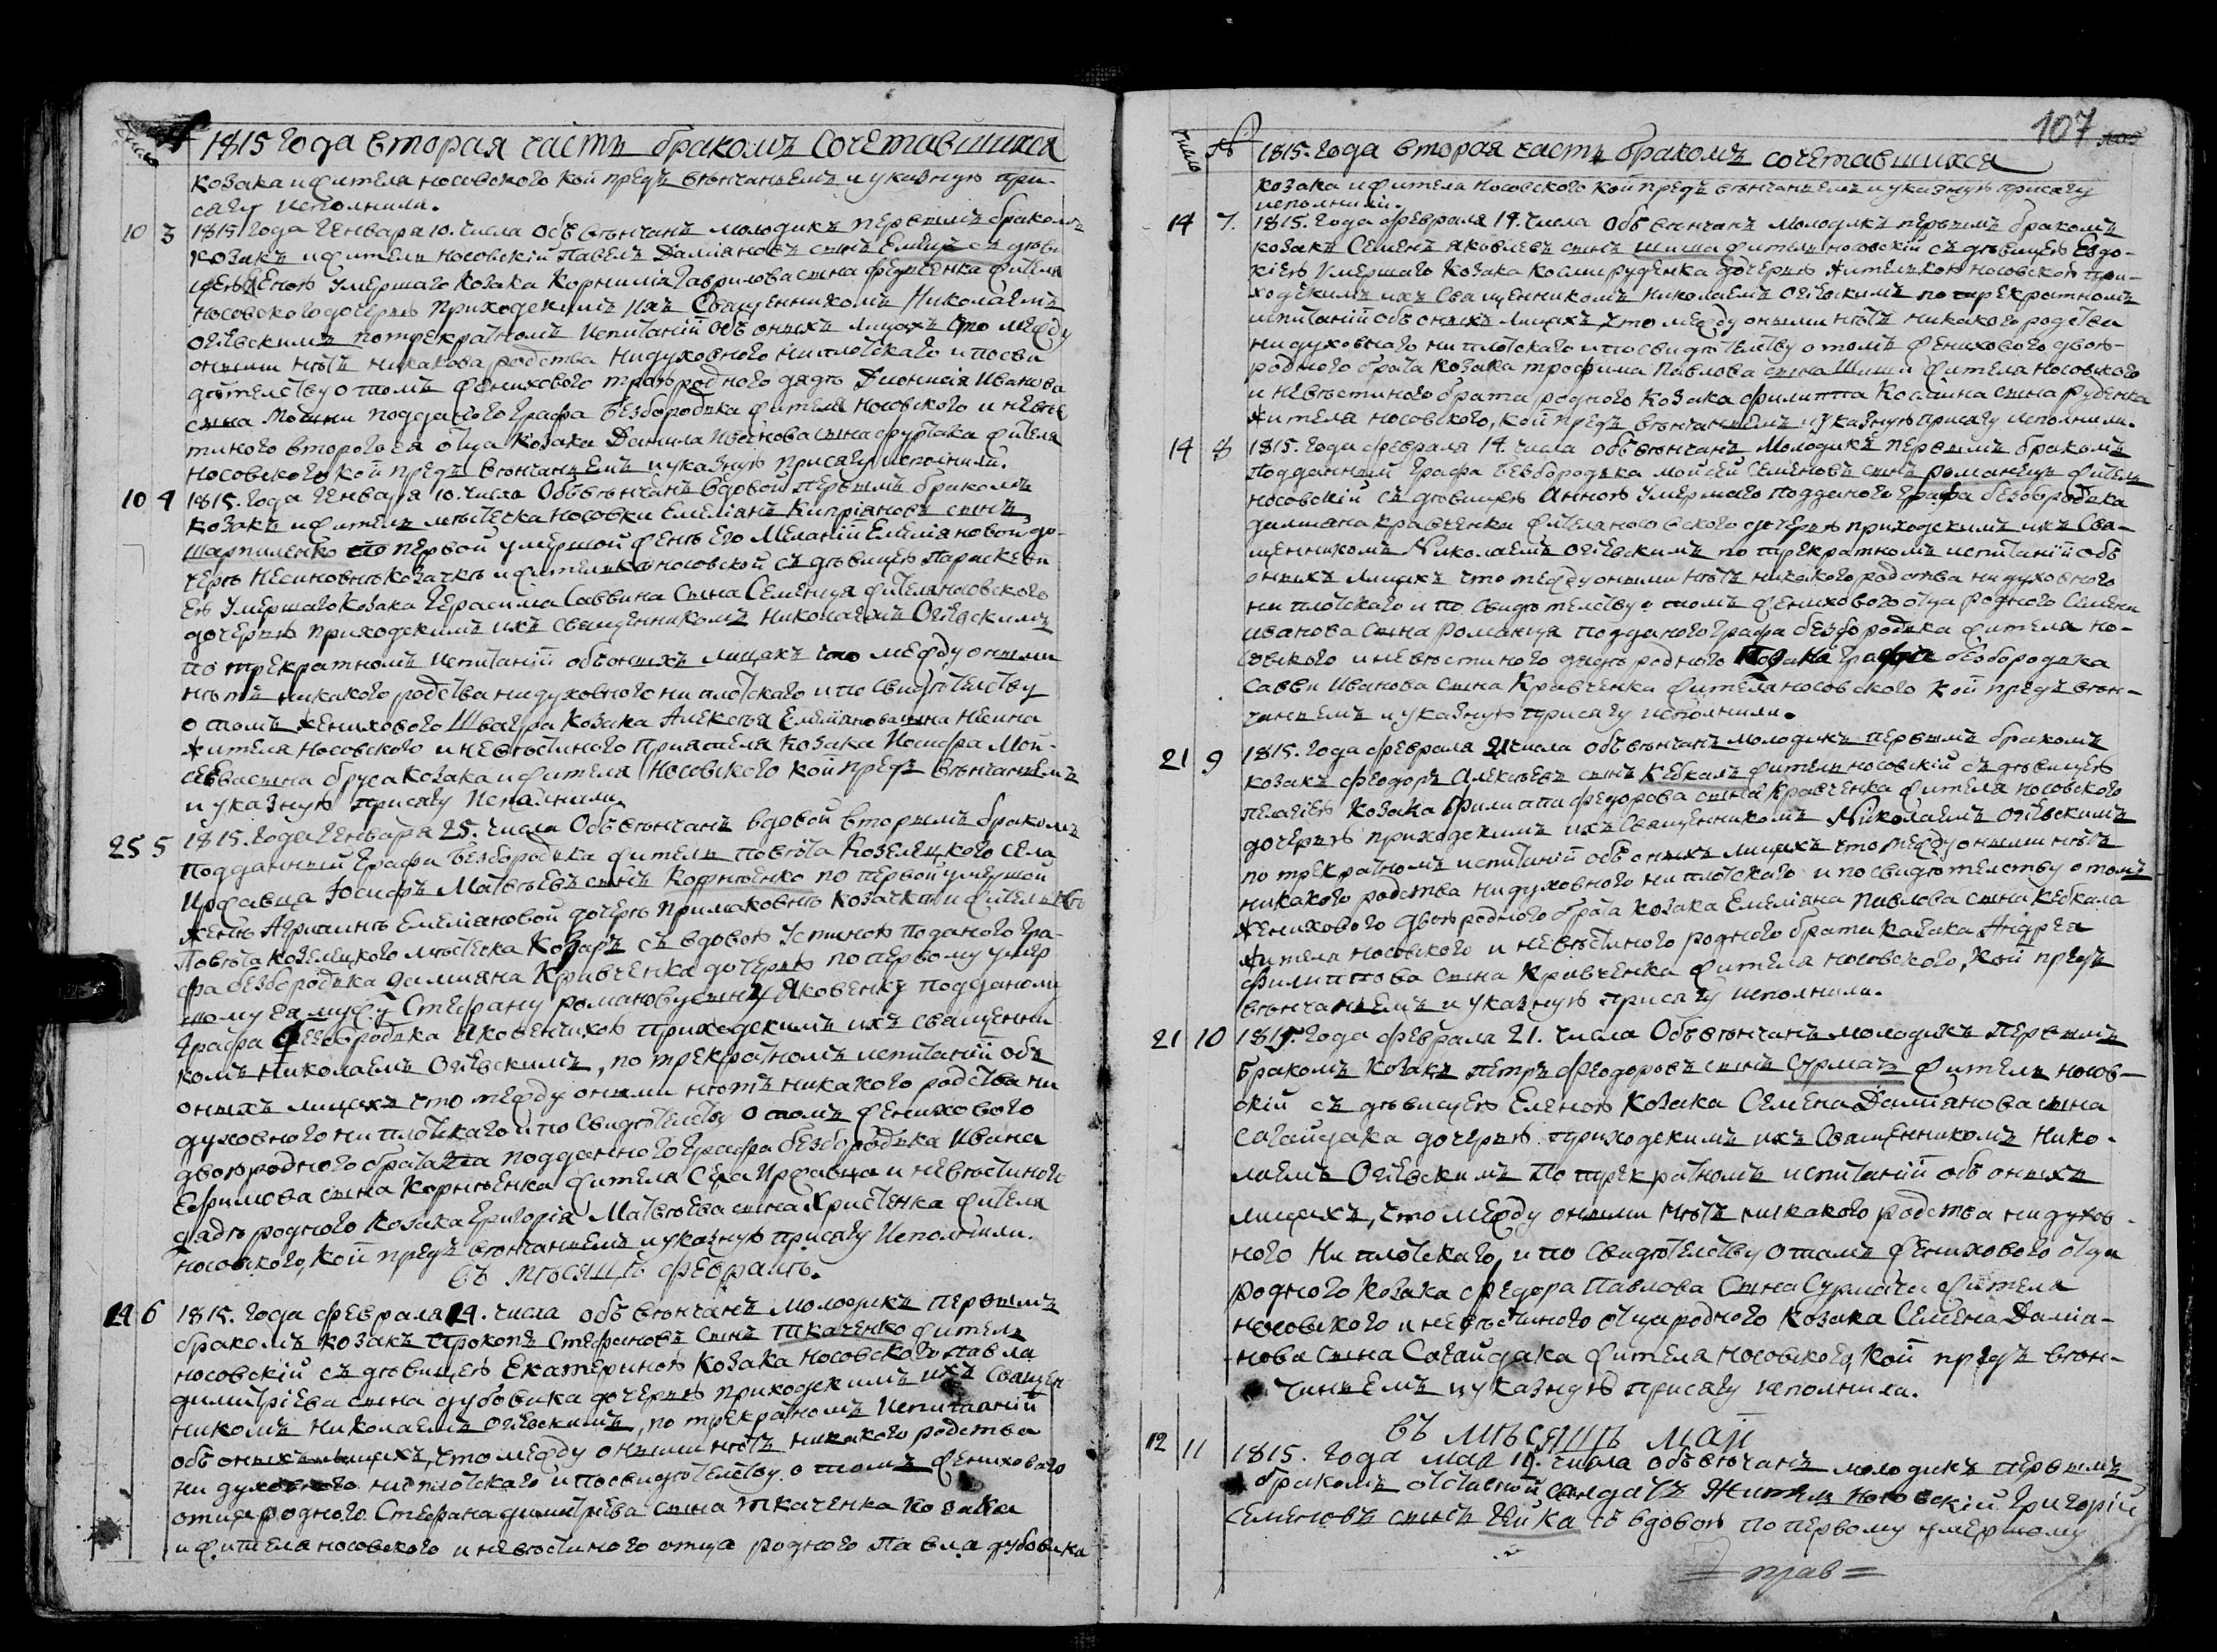 число №
1815 Года вторая часть бракомъ сочетавшихся
козака и жителя носовского кой предъ вѣнчаньемъ и указную при-
сягу исполнили.
10 3 1815 Года Генваря 10. числа Объ вѣнчанъ молодикъ первымъ бракомъ
козакъ и житель носовскій Павелъ Даміановъ сынъ Емецъ съ дѣви
цею Еленою умершаго козака Корнилія Гаврилова сына жителя
носовского дочерью приходскимъ ихъ Священникомъ Николаемъ
Огіевскимъ по трекратномъ испитаній объ оныхъ лицахъ что между
оными нѣтъ никакова родства ни духовного ни плотского и по сви
дѣтельству о томъ женихового троюродного дядѣ Дионисія Иванова
сына подданого Графа Безбородька жителя носовского и невѣс
тиного второго ея отца козака Данила Иванова сына жителя
носовского кой предъ вѣнчаньемъ и указную присягу исполнили.
10 4 1815. Года Генваря 10. числа Объвѣнчанъ вдовой первымъ бракомъ
козакъ и житель мѣстечка носовки Емеліанъ Кипріановъ сынъ
Шарпиленко по первой умершой женѣ его Меланій Емеліановой до-
черѣ козачкѣ и жителькѣ носовской съ дѣвицею Параскеви
ею умершаго козака Герасима Саввина Сына Семенця жителя носовского
дочерью приходскимъ ихъ священникомъ Николаемъ Огіевскимъ
по трекратномъ испитаній объ оныхъ лицахъ что между оными
нѣтъ никакого родства ни духовного ни плотского и по свидѣтельству
о томъ женихового Швагра козака Алексѣя Емеліанова сына
жителя носовского и невѣстиного Приятеля козака Иосифа Мой-
сеева сына бруса козака и жителя Носовского кой предъ вѣнчаньемъ
и указную присягу Исполнили
25 5 1815. Года Генваря 25. числа Объвѣнчанъ вдовой вторымъ бракомъ
подданный Графа Безбородька житель повѣта Козелецкого села
Иржавца Иосифъ Матвѣевъ сынъ Корнѣенко по первой умершой
женѣ Агрипинѣ Емеліановой дочерѣ Примаковнѣ козачкѣ и жителькѣ
Повѣта козелецкого мѣстечка Козаръ съ вдовою Устиною подданого Гра-
фа безбородька Даміана Кравченка дочерью по первому умер
шому ея мужу Стефану романову сыну Яковенку подданому
Графа безбородька Яковенчихою приходскимъ ихъ священни
комъ Николаемъ Огіевскимъ, по трекратномъ испитаній объ
оныхъ лицахъ что между оными нѣтъ никакого родства ни
духовного ни плотского и по Свидѣтельству о томъ женихового
двоюродного брата подданного Графа безбородька Ивана
Ефимова сына Корнѣенка жителя Села Иржавца и невѣстиного
дядѣ родного козака Григорія Матвѣева сына Христенка жителя
носовского, кой предъ вѣнчаньемъ и указную присягу Исполнили.
въ мѣсяцѣ февралѣ.
14 6 1815. Года февраля 14. числа объ вѣнчанъ молодикъ первымъ
бракомъ козакъ Прокопъ Стефановъ Сынъ Ткаченко житель
носовскій съ дѣвицею Екатериною козака носовского Павла
димитріева сына дубовика дочерью приходскимъ ихъ Священ
никомъ Николаемъ Огіевскимъ, по трекратномъ испитаній
объ оныхъ лицахъ, что между оными нѣтъ никакого родства
ни духовного ни плотского и по свидѣтельству о томъ женихового
отца родного Стефана димитріева сына Ткаченка козака
и жителя носовского и невѣстиного отца родного Павла дубовика
107
число №
1815. Года вторая часть бракомъ сочетавшихся
козака и жителя Носовского кой предъ вѣнчаньемъ и указную присягу
исполнили.
14 7. 1815. Года февраля 14. числа Объ вѣнчанъ молодикъ первымъ бракомъ
козакъ Семенъ Яковлевъ сынъ Шиша житель носовскій съ дѣвицею Евдо-
кіею Умершаго козака Косми руденка дочерью жителькою носовскою при-
ходскимъ ихъ Священникомъ Николаемъ Огіевскимъ по трекратномъ
испитаній объ оныхъ лицахъ что между оными нѣтъ никакого родства
ни духовного ни плотского и по свидѣтельству о томъ женихового двою-
родного брата козака трофима Павлова сына Шиши жителя носовского
и невѣстиного брата родного козака филиппа Косміина сына руденка
жителя носовского, кой предъ вѣнчаньемъ и указную присягу исполнили.
14 8 1815. Года февраля 14. числа объвѣнчанъ молодикъ первымъ бракомъ
подданный Графа безбородька мойсей Семеновъ сынъ романецъ житель
носовскій съ дѣвицею Анною умершаго подданого Графа безбородька
даміана кравченка жителя носовского дочерью приходскимъ ихъ Свя-
щенникомъ Николаемъ Огіевскимъ по трекратномъ испитаній объ
оныхъ лицахъ что между оными нѣтъ никакого родства ни духовного
ни плотского и по Свидѣтельству о томъ женихового отца родного Семена
иванова сына романця подданого Графа безбородька жителя но-
совского и невѣстиного дядѣ родного Графа безбородька
Савви Иванова сына Кравченка жителя носовского кой предъ вѣн-
чаньемъ и указную присягу исполнили.
21 9 1815. Года февраля 21 числа объвѣнчанъ молодикъ первымъ бракомъ
козакъ феодоръ Алексѣевъ сынъ Кебкалъ житель носовскій съ дѣвицею
пелагіею козака филиппа федорова сына Кравченка жителя носовского
дочерью приходскимъ ихъ Священникомъ Николаемъ Огіевскимъ
по трекратномъ испитаній объ оныхъ лицахъ что между оными нѣтъ
никакого родства ни духовного ни плотского и по свидѣтельству о томъ
женихового двоюродного брата козака Емеліана Павлова сына Кебкала
жителя носовского и невѣстиного родного брата козака Андрея
филиппова сына Кравченка жителя носовского, кой предъ
вѣнчаньемъ и указную присягу исполнили.
21 10 1815. Года февраля 21. числа Объвѣнчанъ молодикъ первымъ
бракомъ козакъ петръ Феодоровъ сынъ Сурмачъ житель носов-
скій съ дѣвицею Еленою козака Семена Даміанова сына
Сагайдака дочерью приходскимъ ихъ Священникомъ Нико-
лаемъ Огіевскимъ по трекратномъ испитаній объ оныхъ
лицахъ, что между оными нѣтъ никакого родства ни духов-
ного ни плотского, и по Свидѣтельству о томъ женихового отца
родного козака федора Павлова Сына Сурмача жителя
носовского и невѣстиного отца родного козака Семена Даміа-
нова сына Сагайдака жителя носовского, кой предъ вѣн-
чаньемъ и указную присягу исполнили.
въ мѣсяцѣ май
12 11 1815. Года мая 12. числа объвѣнчанъ молодикъ первымъ
бракомъ отставной Солдатъ Житель Носовскій Григорій
Семеновъ сынъ съ вдовою по первому умершому